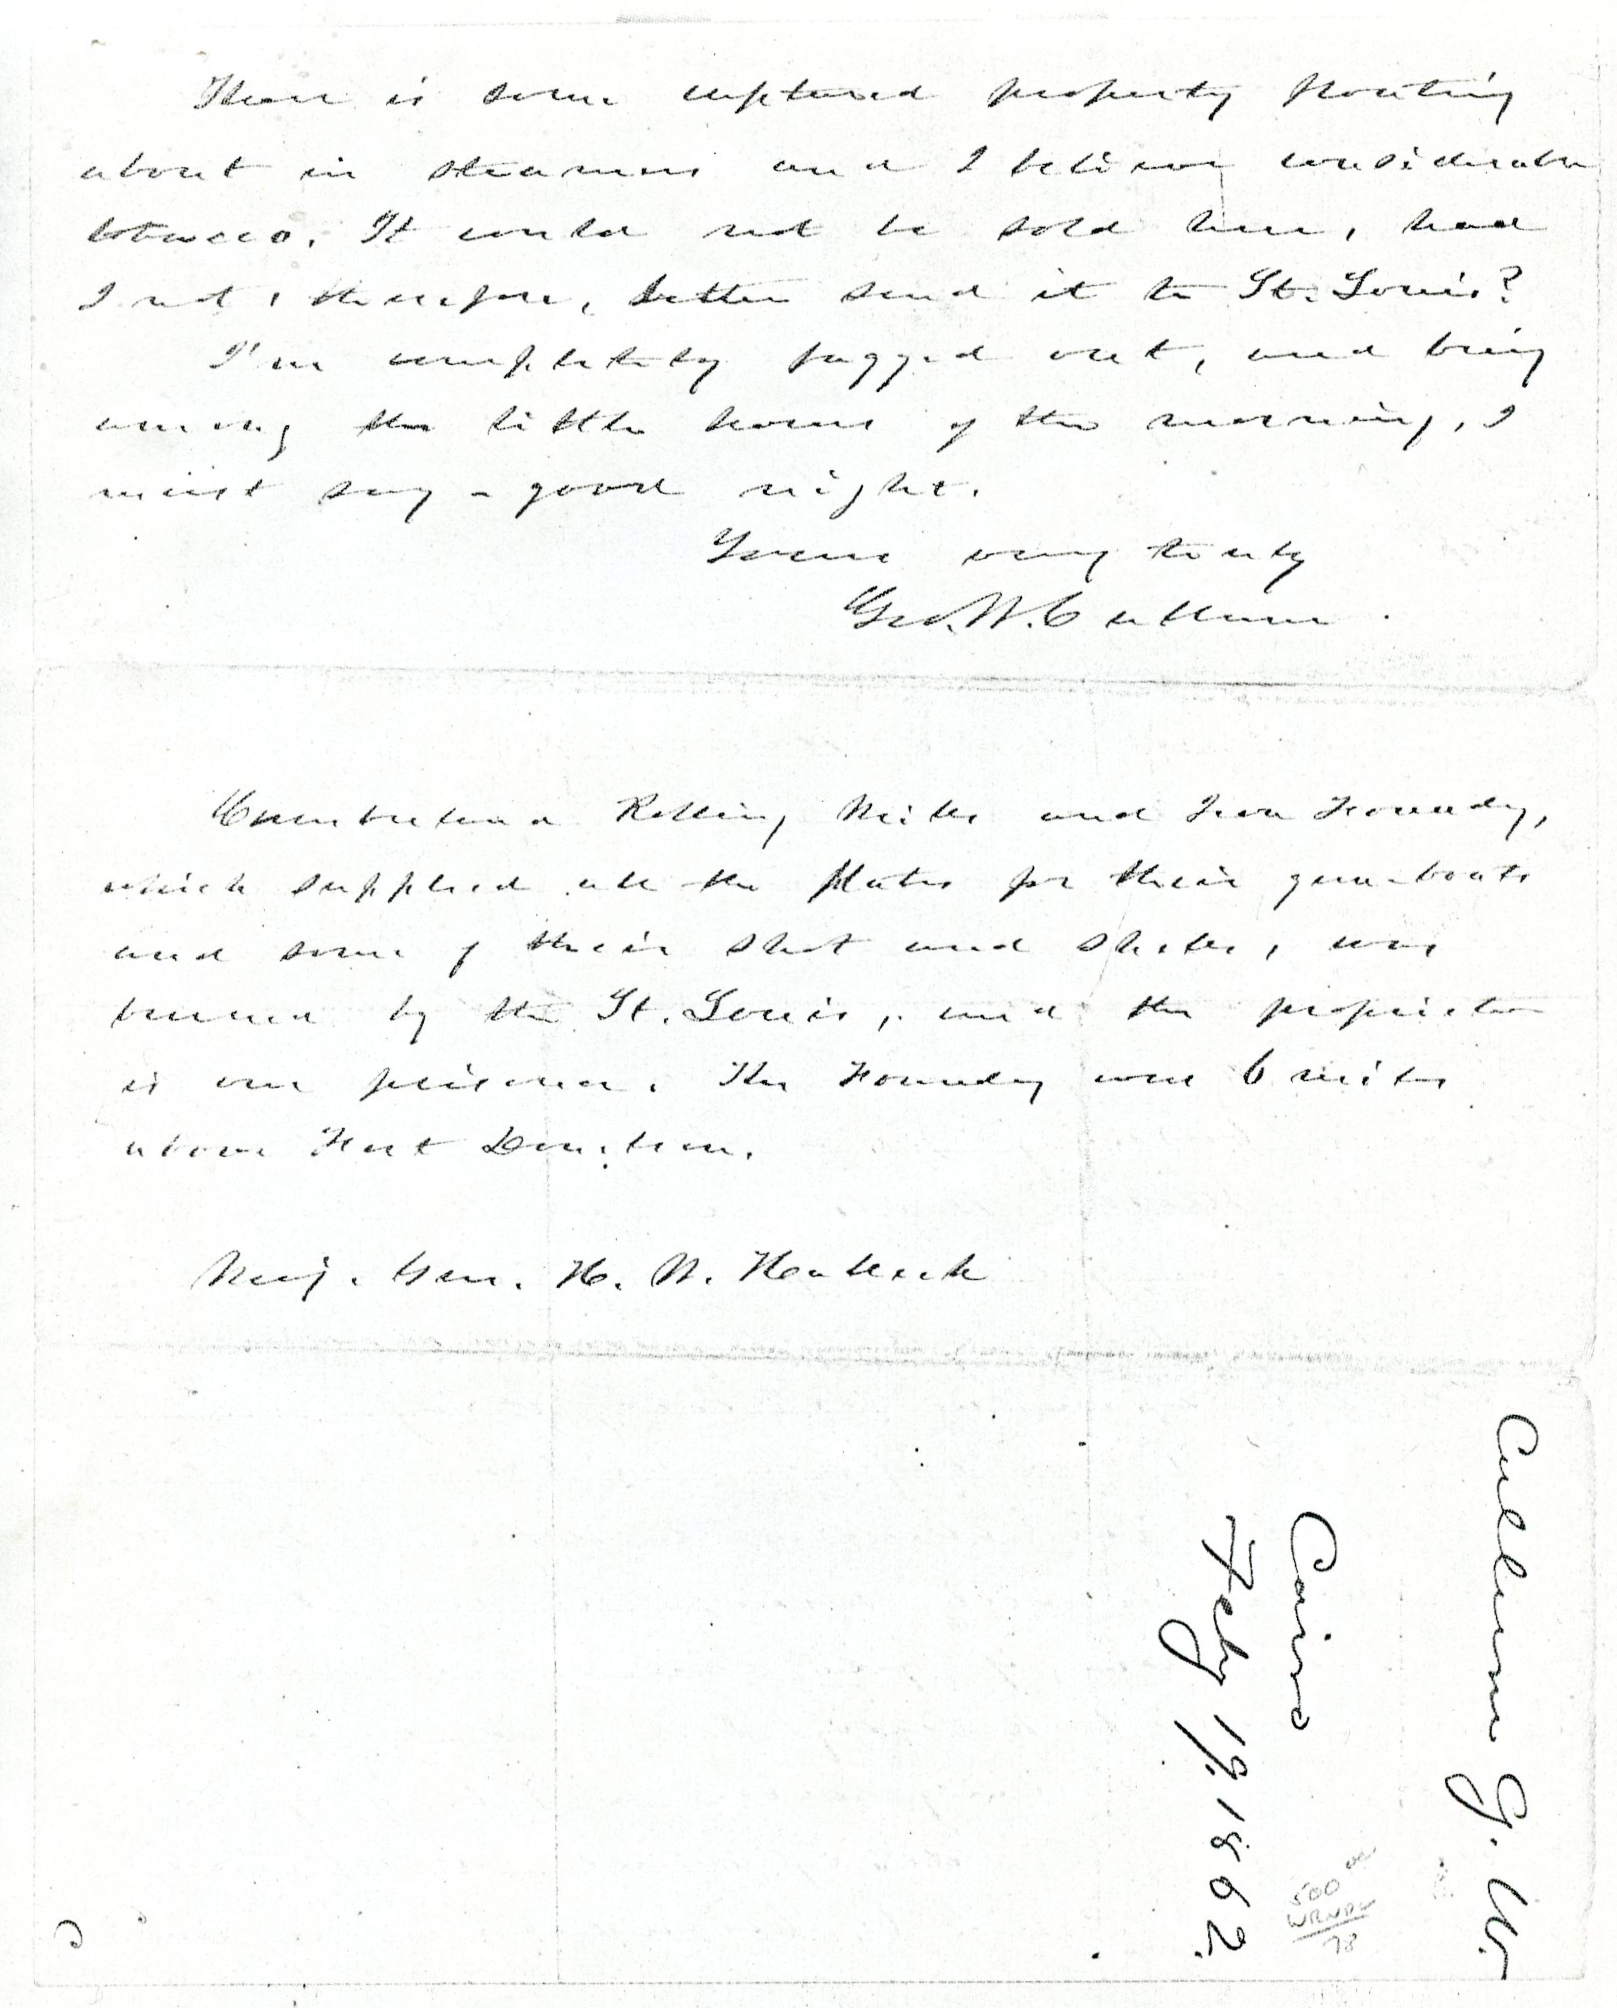 There is some captured property floating
about in steamers and I believe considerable
tobacco. It could not be sold here, had
I not, therefore, better send it to St. Louis?
I'm completely fagged out, and being
among the little hours of the morning, I
must say - good night.
Yours very truly
Geo. W. Cullum.
Cumberland Rolling Mills and Iron Foundry,
which supplied all the plates for their gun-boats
and some of their shot and shells, was
burned by the St. Louis, and the proprietor
is our prisoner. The Foundry was 6 miles
above Fort Donelson.
Maj. Gen. H. W. Halleck
Cullum G. W.
Cairo
Feby 19. 1862.
500
78